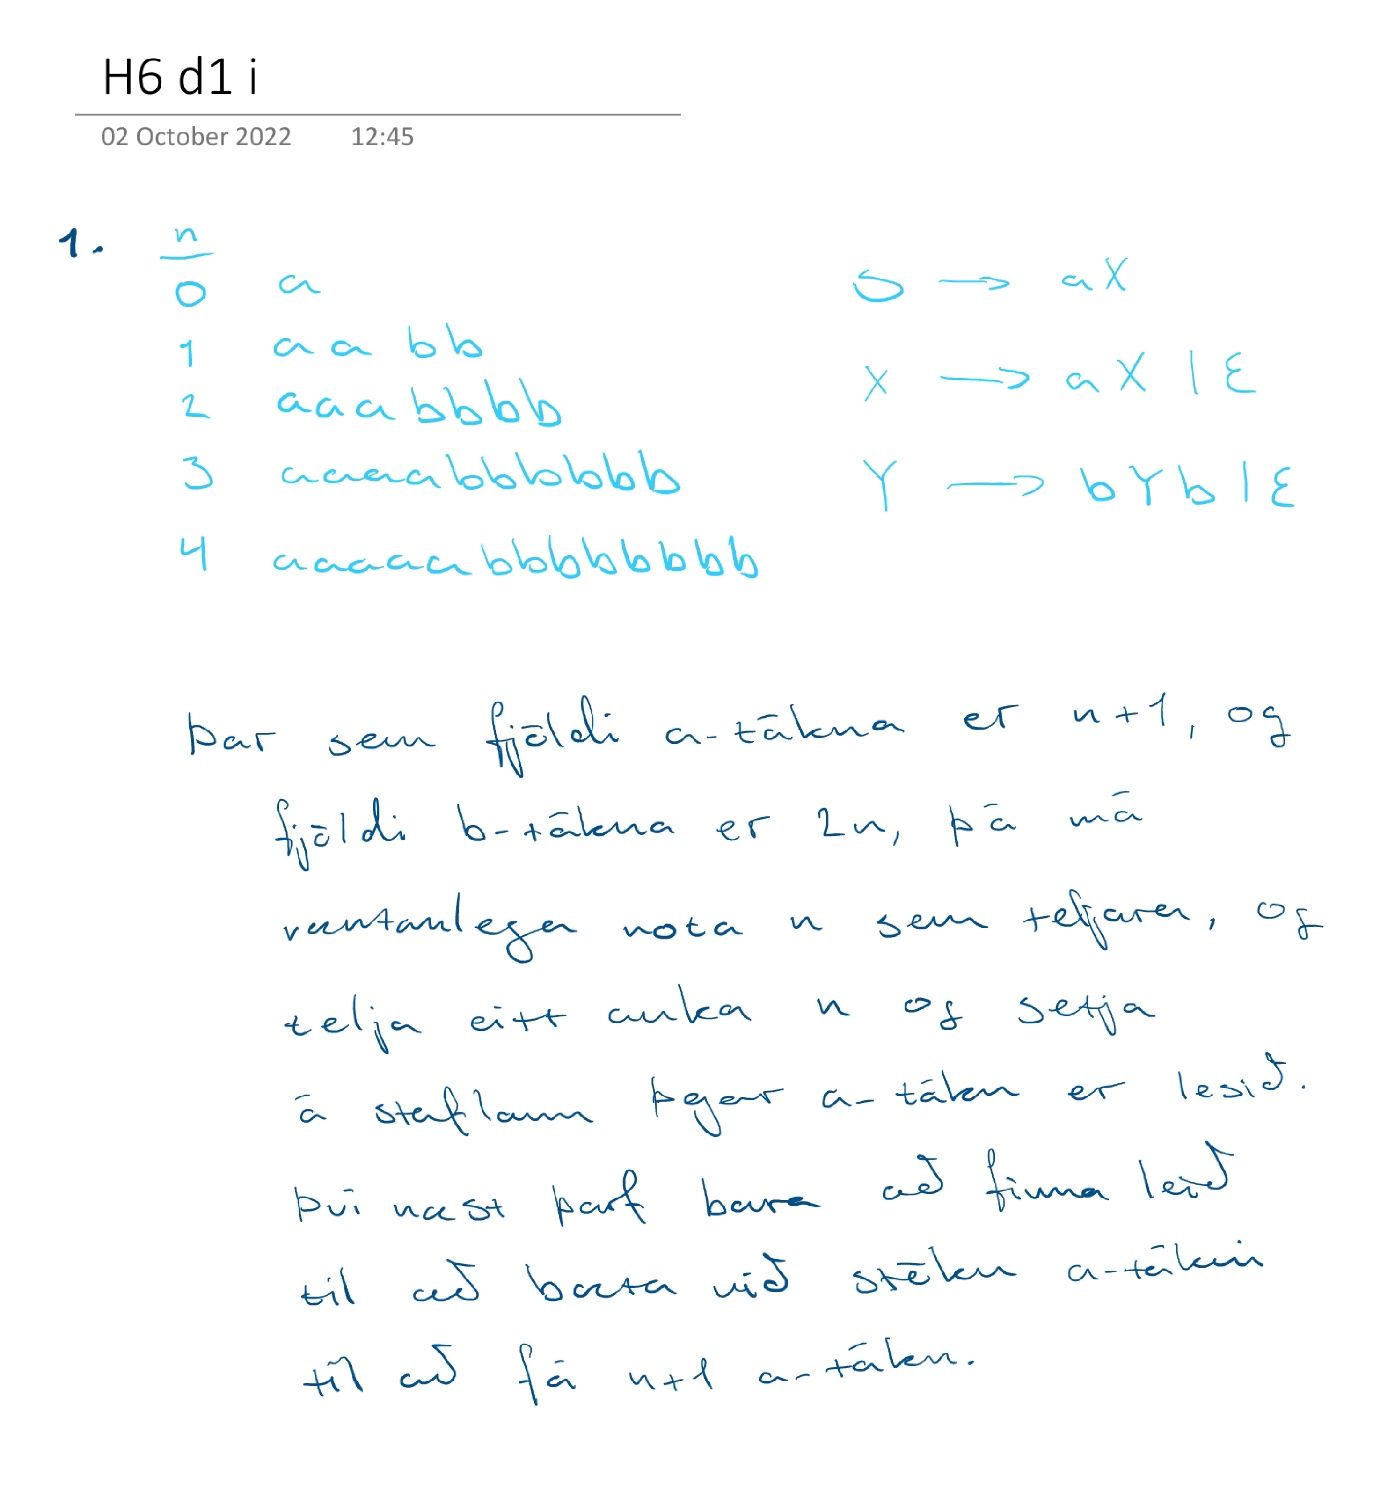 H6 d1 i
02 October 2022 12:45
1. n
0 a S → aX
1 a a b b
2 a a a b b b b X → a X | ε
3 a a a a b b b b b b Y → b Y b | ε
4 a a a a a b b b b b b b b
Þar sem fjöldi a-tákna er n+1, og
fjöldi b-tákna er 2n, þá má
væntanlega nota n sem teljara, og
telja eitt auka n og setja
á staflann þegar a-tákn er lesið.
Því næst þarf bara að finna leið
til að bæta við stöku a-tákni
til að fá n+1 a-tákn.